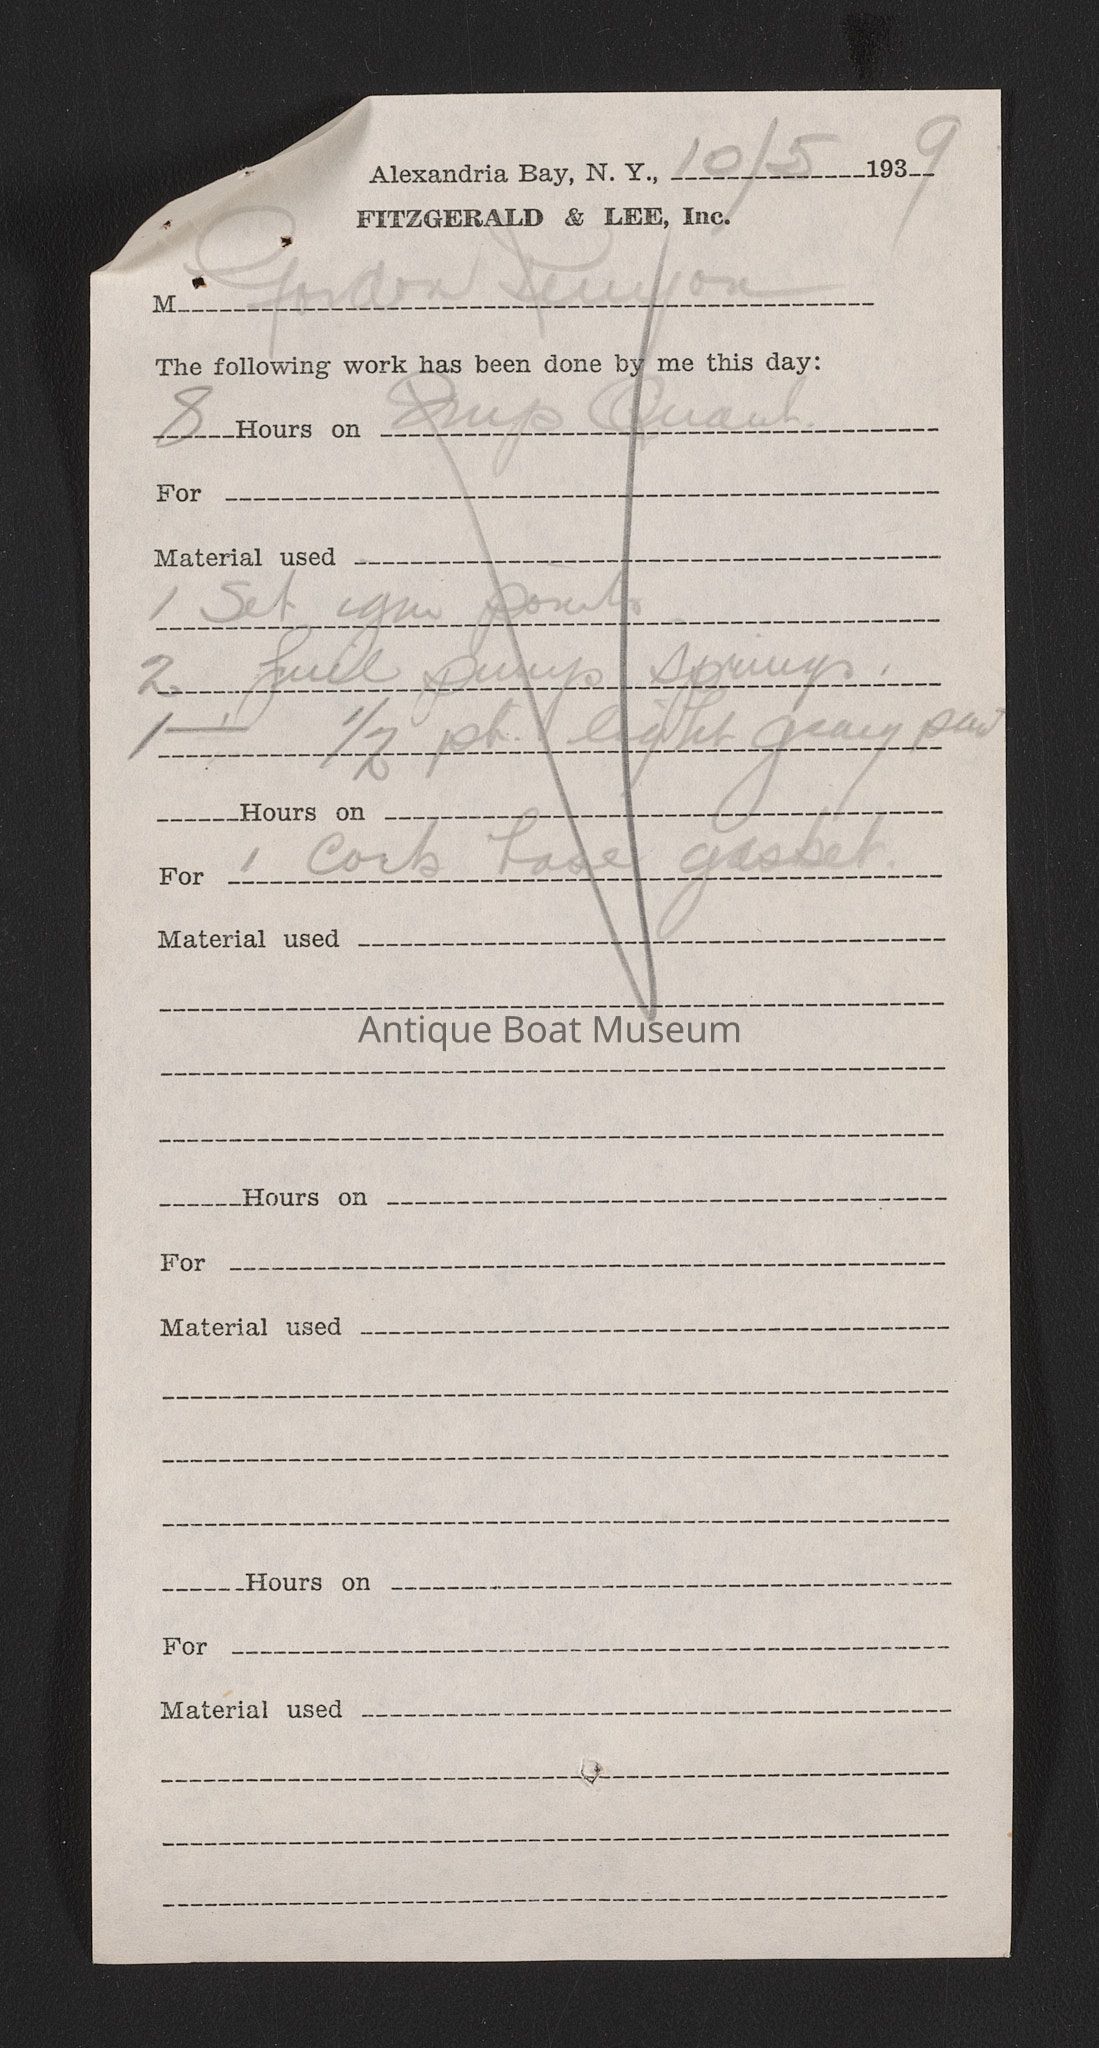 Alexandria Bay, N. Y., 10/5 1939
FITZGERALD & LEE, Inc.
M Gordon
The following work has been done by me this day:
8 Hours on
For
Material used
1 Set ign points
2 fuel pump springs.
1 — 1/2 pt. light gray
Hours on
For 1 Cork base gasket.
Material used
Antique Boat Museum
Hours on
For
Material used
Hours on
For
Material used